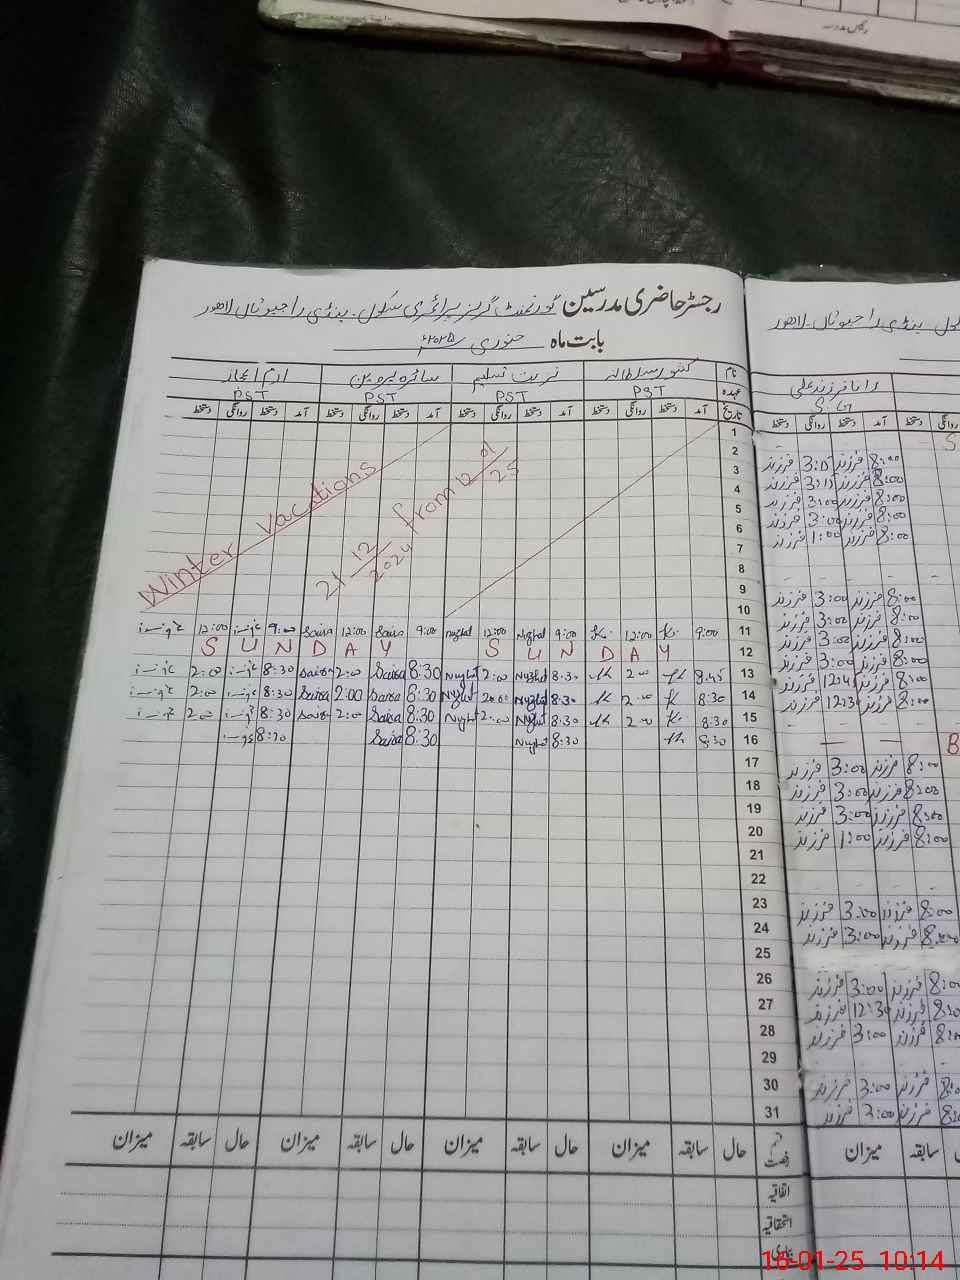 رجسٹر حاضری مدرسین گورنمنٹ گرلز پرائمری سکول ۔ پنڈی راجپوتاں لاہور
بابت ماہ جنوری ۲۰۲۵ء
نام کنور سلطانہ نزہت تسلیم سائرہ پروین ارم اعجاز
عہدہ PST PST PST PST
تاریخ آمد دستخط روانگی دستخط آمد دستخط روانگی دستخط آمد دستخط روانگی دستخط آمد دستخط روانگی دستخط
1
2
3
4
5
6
7
8
9
10
Winter Vacations
21 12 2024 from 12 01 25
12:00 9:00 Saira 12:00 Saira 9:00 Nuzhat 12:00 Nuzhat 9:00 K. 12:00 K. 9:00 11
S U N D A Y S U N D A Y 12
2:00 8:30 Saira 2:00 Saira 8:30 Nuzhat 2:00 Nuzhat 8:30 2:00 8:45 13
2:00 8:30 Saira 2:00 Saira 8:30 Nuzhat 2:00 Nuzhat 8:30 2:00 8:30 14
2:00 8:30 Saira 2:00 Saira 8:30 Nuzhat 2:00 Nuzhat 8:30 2:00 K. 8:30 15
8:30 Saira 8:30 Nuzhat 8:30 8:30 16
17
18
19
20
21
22
23
24
25
26
27
28
29
30
31
حال سابقہ میزان حال سابقہ میزان حال سابقہ میزان حال سابقہ میزان
اتفاقیہ
استحقاقیہ
بیماری
سکول پنڈی راجپوتاں ۔ لاہور
رانا فرزند علی
S.G
روانگی دستخط آمد دستخط روانگی دستخط
8:00 فرزند 3:00 فرزند
8:00 فرزند 3:00 فرزند
8:00 فرزند 3:00 فرزند
8:00 فرزند 3:00 فرزند
8:00 فرزند 1:00 فرزند
8:00 فرزند 3:00 فرزند
8:00 فرزند 3:00 فرزند
8:00 فرزند 3:00 فرزند
8:00 فرزند 3:00 فرزند
8:00 فرزند فرزند
8:00 فرزند فرزند
8:00 فرزند 3:00 فرزند
8:00 فرزند 3:00 فرزند
8:00 فرزند 3:00 فرزند
8:00 فرزند 1:00 فرزند
8:00 فرزند 3:00 فرزند
8:00 فرزند 3:00 فرزند
8:00 فرزند 3:00 فرزند
فرزند 12:30 فرزند
فرزند 3:00 فرزند
فرزند 3:00 فرزند
فرزند 3:00 فرزند
سابقہ میزان
16-01-25 10:14